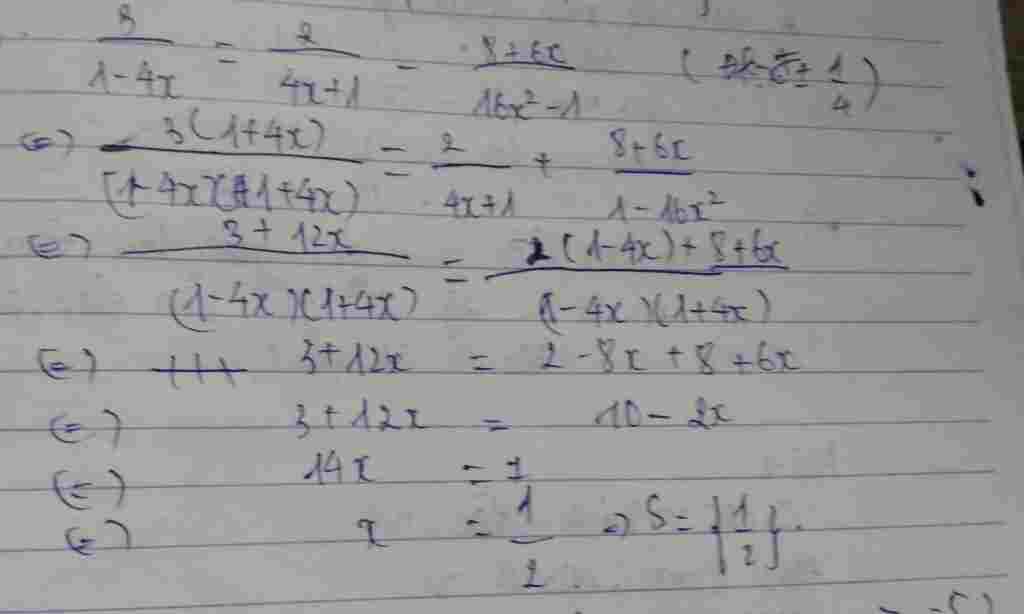 3/(1-4x) = 2/(4x+1) - (8+6x)/(16x²-1) ( 1/4)
(=) 3(1+4x)/((1-4x)(1+4x)) = 2/(4x+1) + (8+6x)/(1-16x²)
(=) (3+12x)/((1-4x)(1+4x)) = (2(1-4x)+8+6x)/((1-4x)(1+4x))
(=) 3+12x = 2-8x+8+6x
(=) 3+12x = 10-2x
(=) 14x = 7
(=) x = 1/2 => S={1/2}.